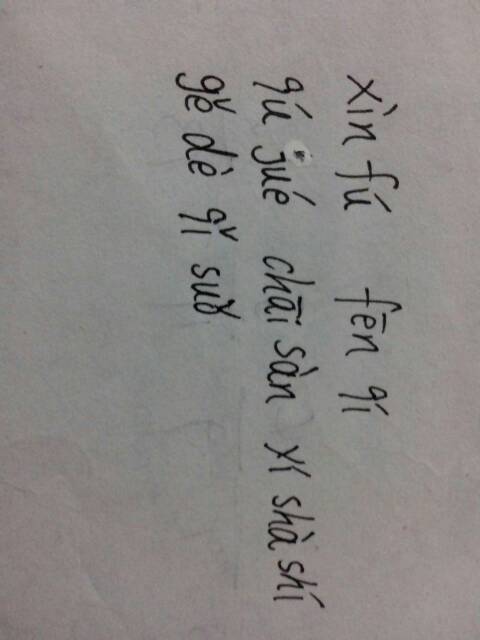 xìn fú fēn qí
qú jué chāi sàn xí shà shí
gě dè qǐ suǒ